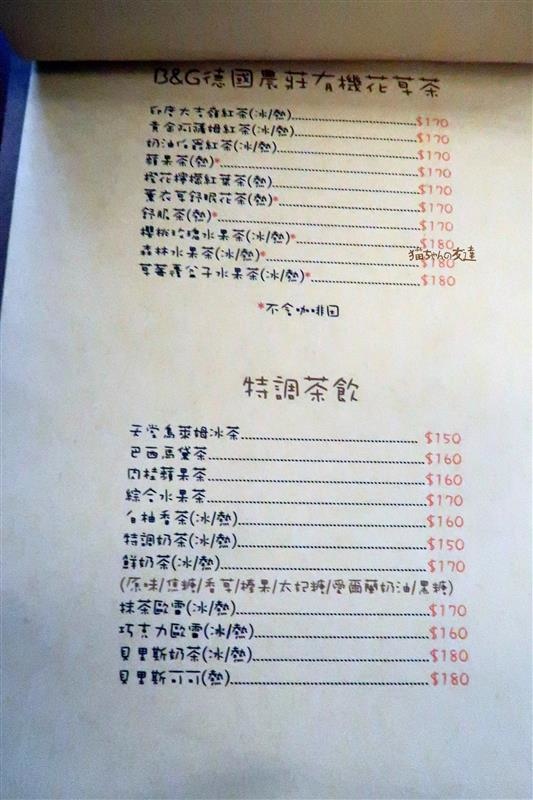 B&G德國農莊有機花草茶
印度大吉嶺紅茶(冰/熱)........$170
黃金阿薩姆紅茶(冰/熱)........$170
奶油伯爵紅茶(冰/熱)........$170
蘋果茶(熱)*........$170
橙花檸檬紅葉茶(熱)........$170
薰衣草舒眠花茶(熱)*........$170
舒服茶(熱)*........$170
櫻桃玲瓏水果茶(冰/熱)*........$180
森林水果茶(冰/熱)*........$180
貓ちゃんの友達
草莓費公子水果茶(冰/熱)*........$180
*不含咖啡因
特調茶飲
天堂烏萊姆冰茶........$150
巴西馬黛茶........$160
肉桂蘋果茶........$160
綜合水果茶........$170
白柚香茶(冰/熱)........$160
特調奶茶(冰/熱)........$150
鮮奶茶(冰/熱)........$170
(原味/焦糖/香草/榛果/太妃糖/愛爾蘭奶油/黑糖)
抹茶歐雪(冰/熱)........$170
巧克力歐雪(冰/熱)........$160
貝里斯奶茶(冰/熱)........$180
貝里斯可可(熱)........$180